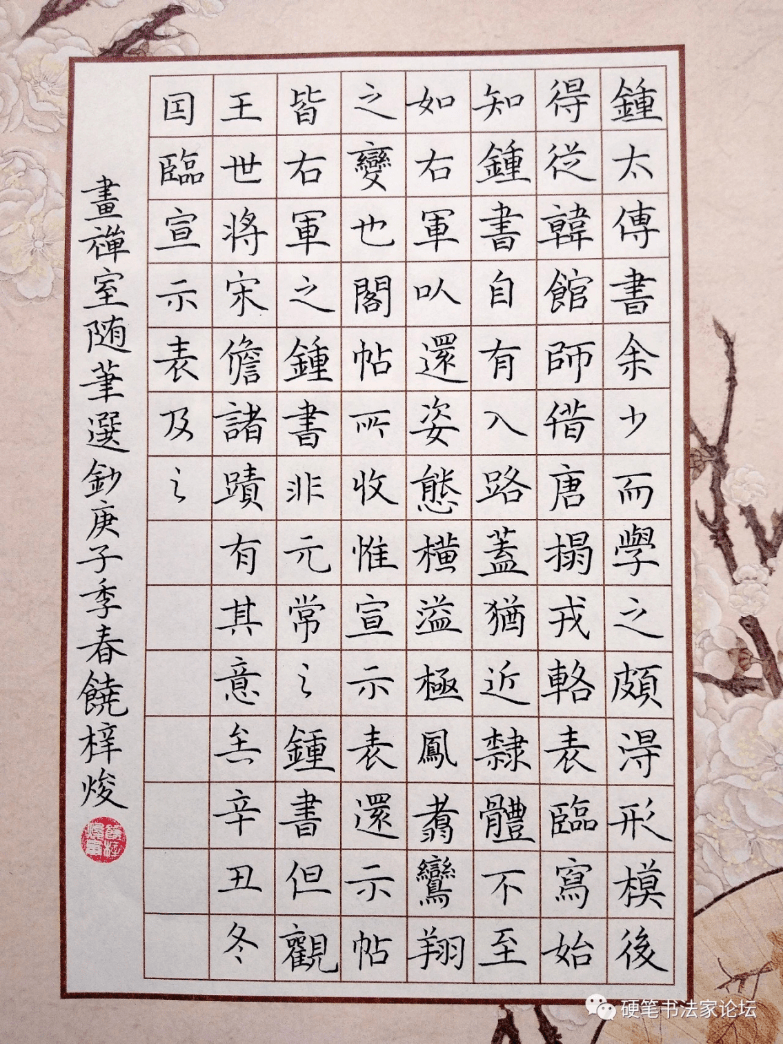 鍾太傅書余少而學之頗淂形模後
得從韓館師借唐搨戎輅表臨寫始
知鍾書自有入路蓋猶近隸體不至
如右軍以還姿態橫溢極鳳翥鸞翔
之變也閣帖所收惟宣示表還示帖
皆右軍之鍾書非元常之鍾書但觀
王世將宋儋諸蹟有其意矣辛丑冬
因臨宣示表及之
畫禪室随筆選鈔庚子季春饒梓焌
硬笔书法家论坛